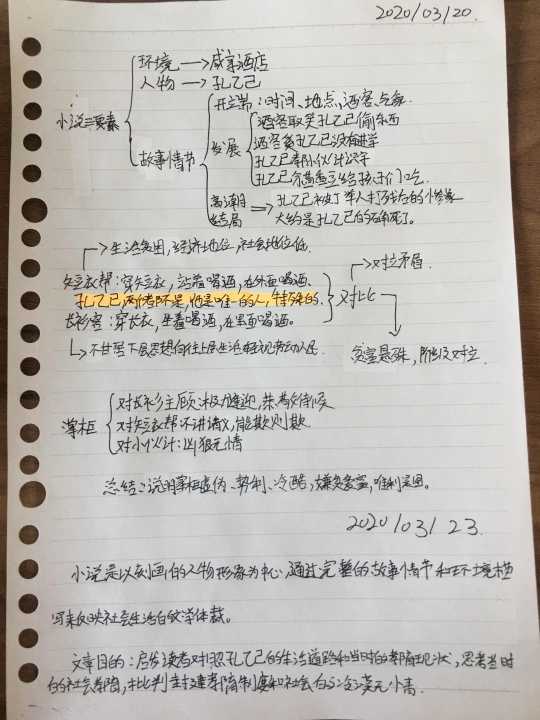 2020/03/20.
环境→咸亨酒店
人物→孔乙己
小说三要素
开端：时间、地点、酒客、
酒客取笑孔乙己偷东西
酒客笑孔乙己没有进学
故事情节
发展
孔乙己教小伙计识字
孔乙己分茴香豆给孩子们吃
高潮
结局
⇒孔乙己被丁举人打残后的小惨象
大约是孔乙己的确死了。
→生活贫困，经济地位 社会地位低
短衣帮：穿短衣，站着喝酒，在外面喝酒、
→对立矛盾.
孔乙己两者都不是，他是唯一的人，特殊的、
对比
长衫客：穿长衣，坐着喝酒，在里面喝酒。
↳不甘居下层思想向往上层生活轻视劳动人民
贫富悬殊，阶级对立
对长衫主顾：极力逢迎，恭敬伺候
掌柜
对短衣帮：不讲情义，能欺则欺
对小伙计：凶狠无情
总结：说明掌柜虚伪、势利、冷酷，嫌贫爱富，唯利是图。
2020/03/23.
小说是以刻画的人物形象为中心，通过完整的故事情节和环境描
写来反映社会生活的文学体裁。
文章目的：启发读者对照孔乙己的生活道路和当时的教育现状，思考当时
的社会教育，批判封建教育制度和社会的冷漠无情.